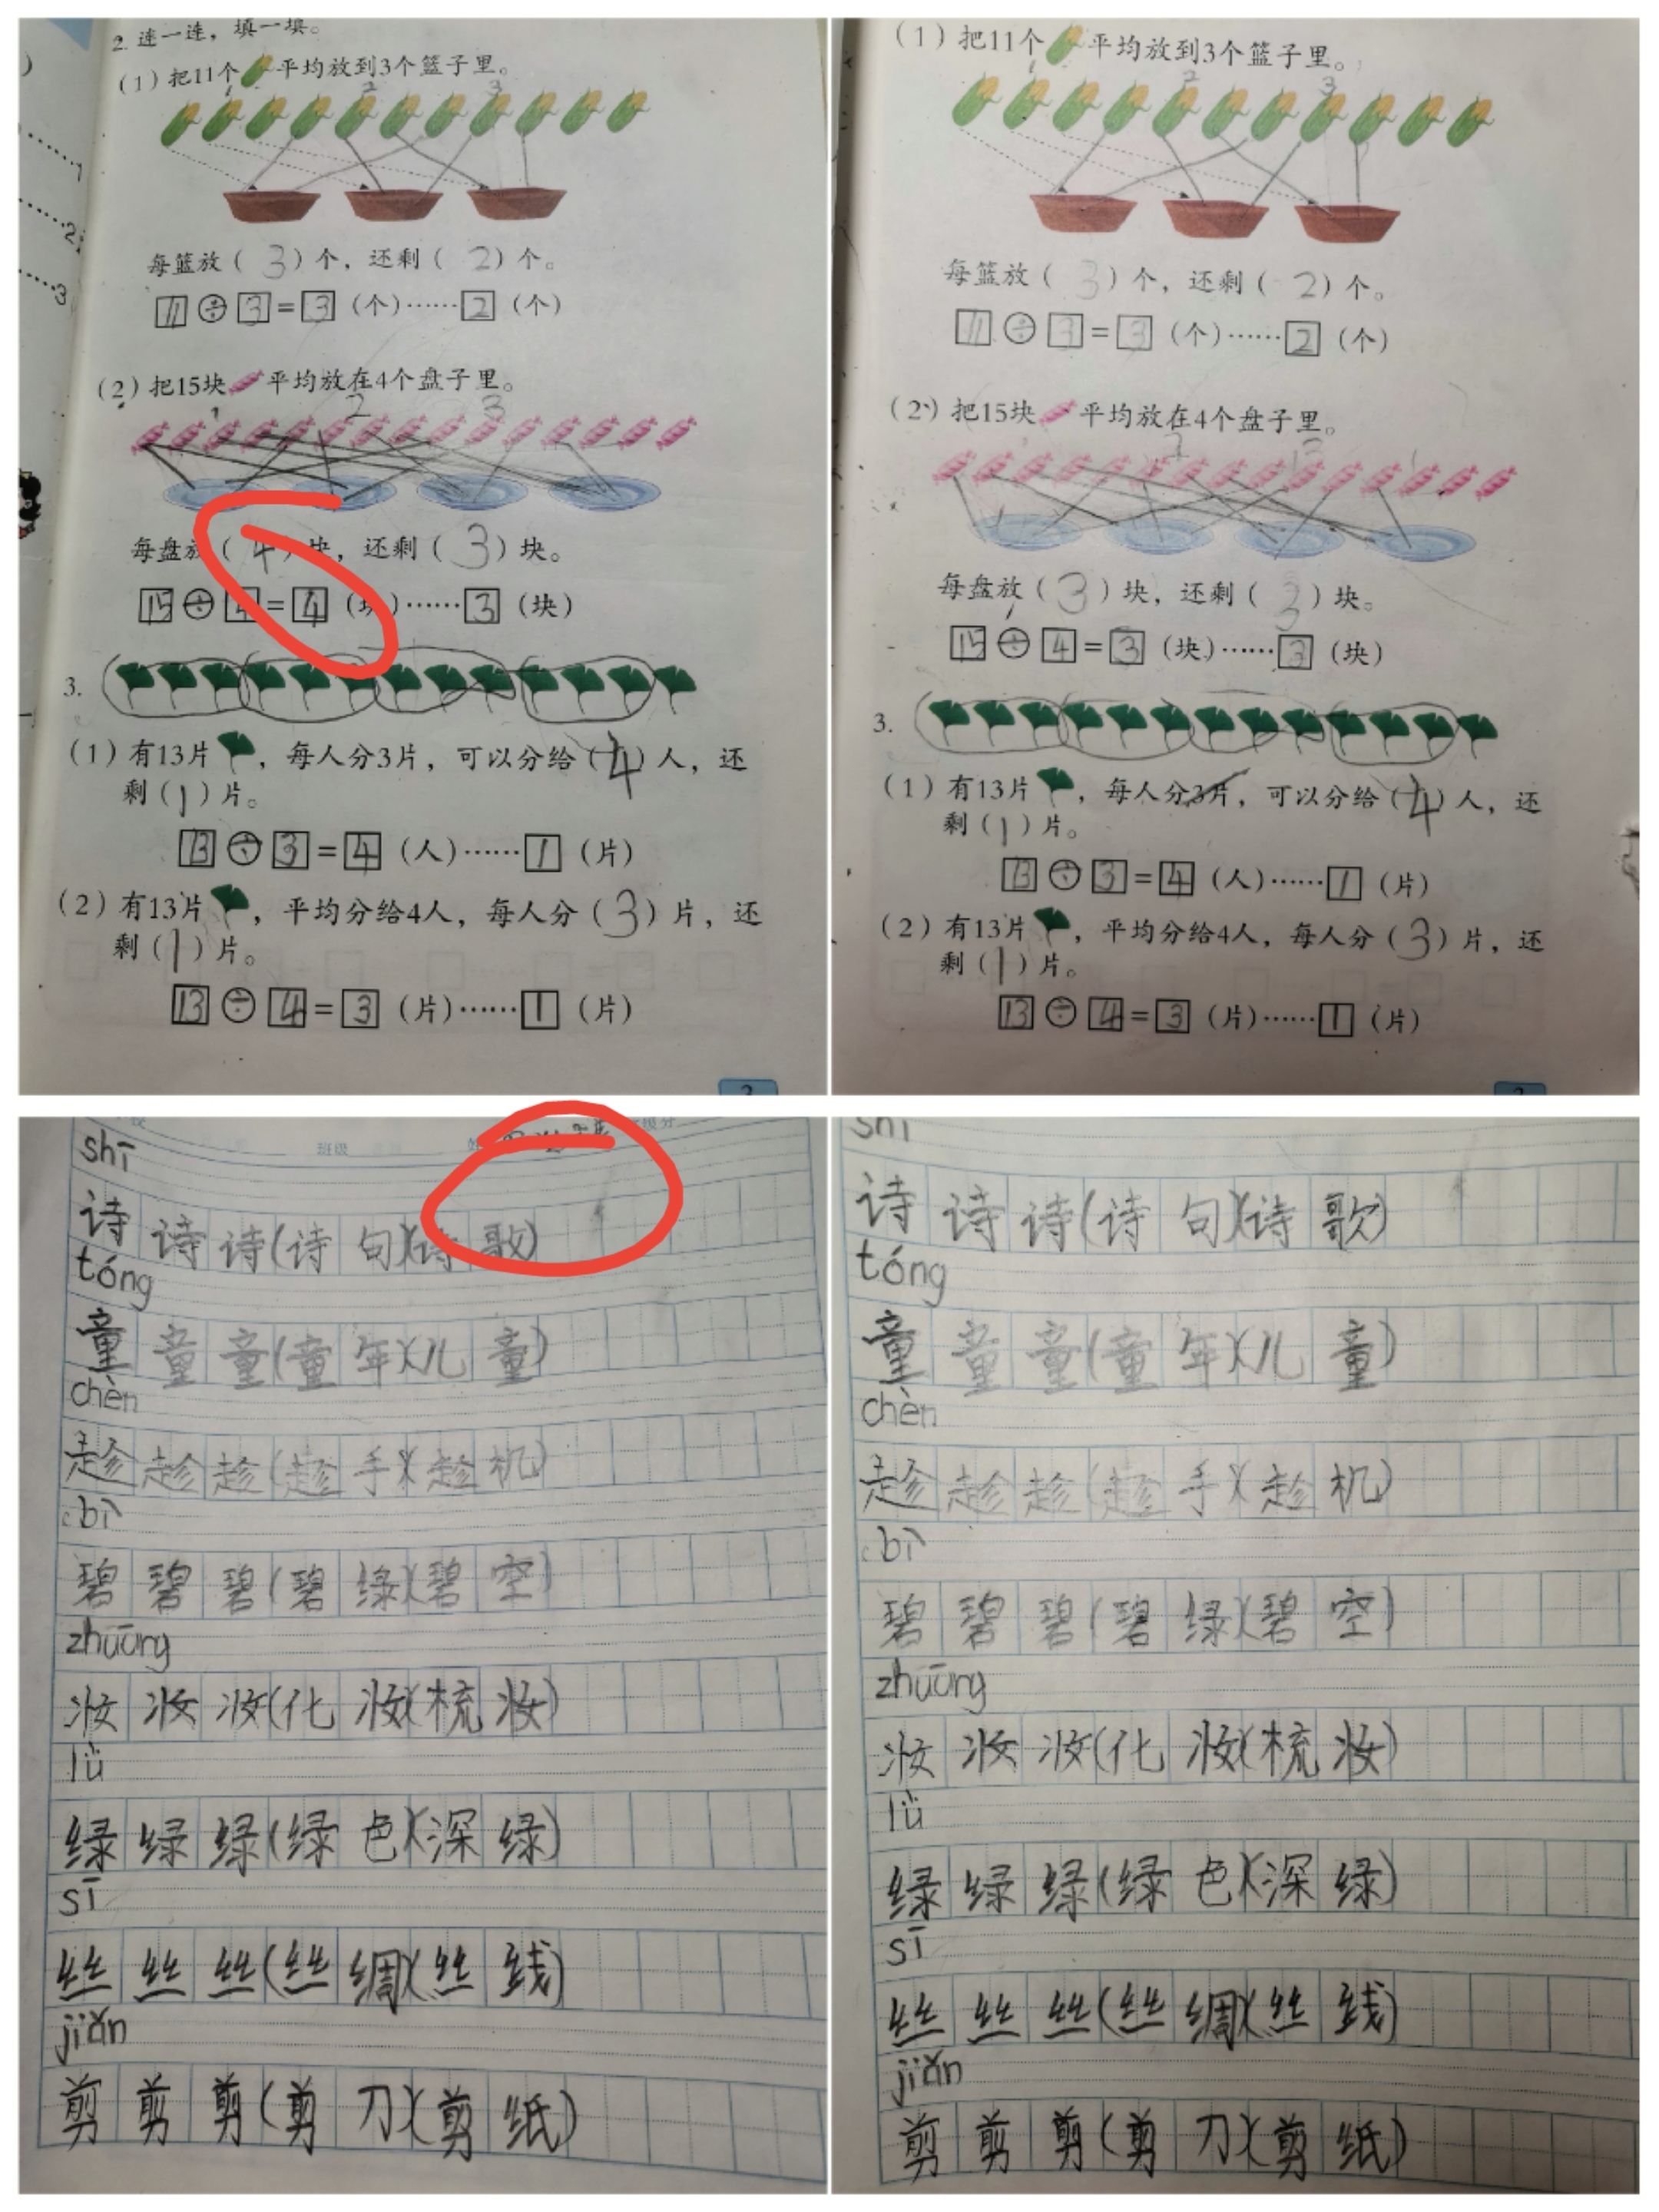 2. 连一连，填一填。
(1) 把11个 平均放到3个篮子里。
1 2 3
每篮放( 3 )个，还剩( 2 )个。
11 ÷ 3 = 3 (个)……2 (个)
(2) 把15块 平均放在4个盘子里。
1 2 3
每盘放( 4 )块，还剩( 3 )块。
15 ÷ 4 = 4 (块)……3 (块)
3.
(1) 有13片 ，每人分3片，可以分给( 4 )人，还
剩( 1 )片。
13 ÷ 3 = 4 (人)……1 (片)
(2) 有13片 ，平均分给4人，每人分( 3 )片，还
剩( 1 )片。
13 ÷ 4 = 3 (片)……1 (片)
(1) 把11个 平均放到3个篮子里。
1 2 3
每篮放( 3 )个，还剩( 2 )个。
11 ÷ 3 = 3 (个)……2 (个)
(2) 把15块 平均放在4个盘子里。
每盘放( 3 )块，还剩( 3 )块。
15 ÷ 4 = 3 (块)……3 (块)
3.
(1) 有13片 ，每人分3片，可以分给( 4 )人，还
剩( 1 )片。
13 ÷ 3 = 4 (人)……1 (片)
(2) 有13片 ，平均分给4人，每人分( 3 )片，还
剩( 1 )片。
13 ÷ 4 = 3 (片)……1 (片)
班级
shī
诗 诗 诗(诗句)(诗歌)
tóng
童 童 童(童年)(儿童)
chèn
趁 趁 趁(趁手)(趁机)
bì
碧 碧 碧(碧绿)(碧空)
zhuāng
妆 妆 妆(化妆)(梳妆)
lǜ
绿 绿 绿(绿色)(深绿)
sī
丝 丝 丝(丝绸)(丝线)
jiǎn
剪 剪 剪(剪刀)(剪纸)
shī
诗 诗 诗(诗句)(诗歌)
tóng
童 童 童(童年)(儿童)
chèn
趁 趁 趁(趁手)(趁机)
bì
碧 碧 碧(碧绿)(碧空)
zhuāng
妆 妆 妆(化妆)(梳妆)
lǜ
绿 绿 绿(绿色)(深绿)
sī
丝 丝 丝(丝绸)(丝线)
jiǎn
剪 剪 剪(剪刀)(剪纸)